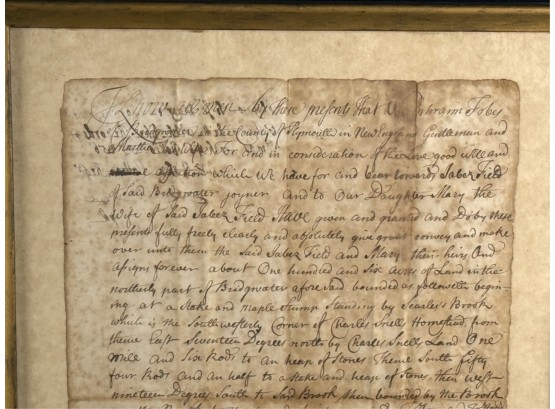 Know all men by these presents that We Ephraim Fobes
of Bridgwater in the County of Plymouth in New England Gentleman and
Martha for and in consideration of the Love good will and
affection which We have for and bear towards Jabez Field
of Said Bridgwater joyner and to Our Daughter Mary the
Wife of Said Jabez Field Have given and granted and Do by these
presents fully freely clearly and absolutely give grant convey and make
over unto them the Said Jabez Field and Mary their hiers And
assigns forever about One hundred and Six acres of Land in the
northerly part of Bridgwater afore said bounded as followeth begin-
ing at a Stake and maple Stump Standing by Searles's Brook
which is the Southwesterly Corner of Charles Snells Homestead from
thence East Seventeen Degrees north by Charles Snells Land One
Mile and Six Rods to an heap of Stones Thence South Fifty
four Rods and an half to a Stake and heap of Stones, then west
nineteen Degrees South to Said Brook then bounded by the Brook